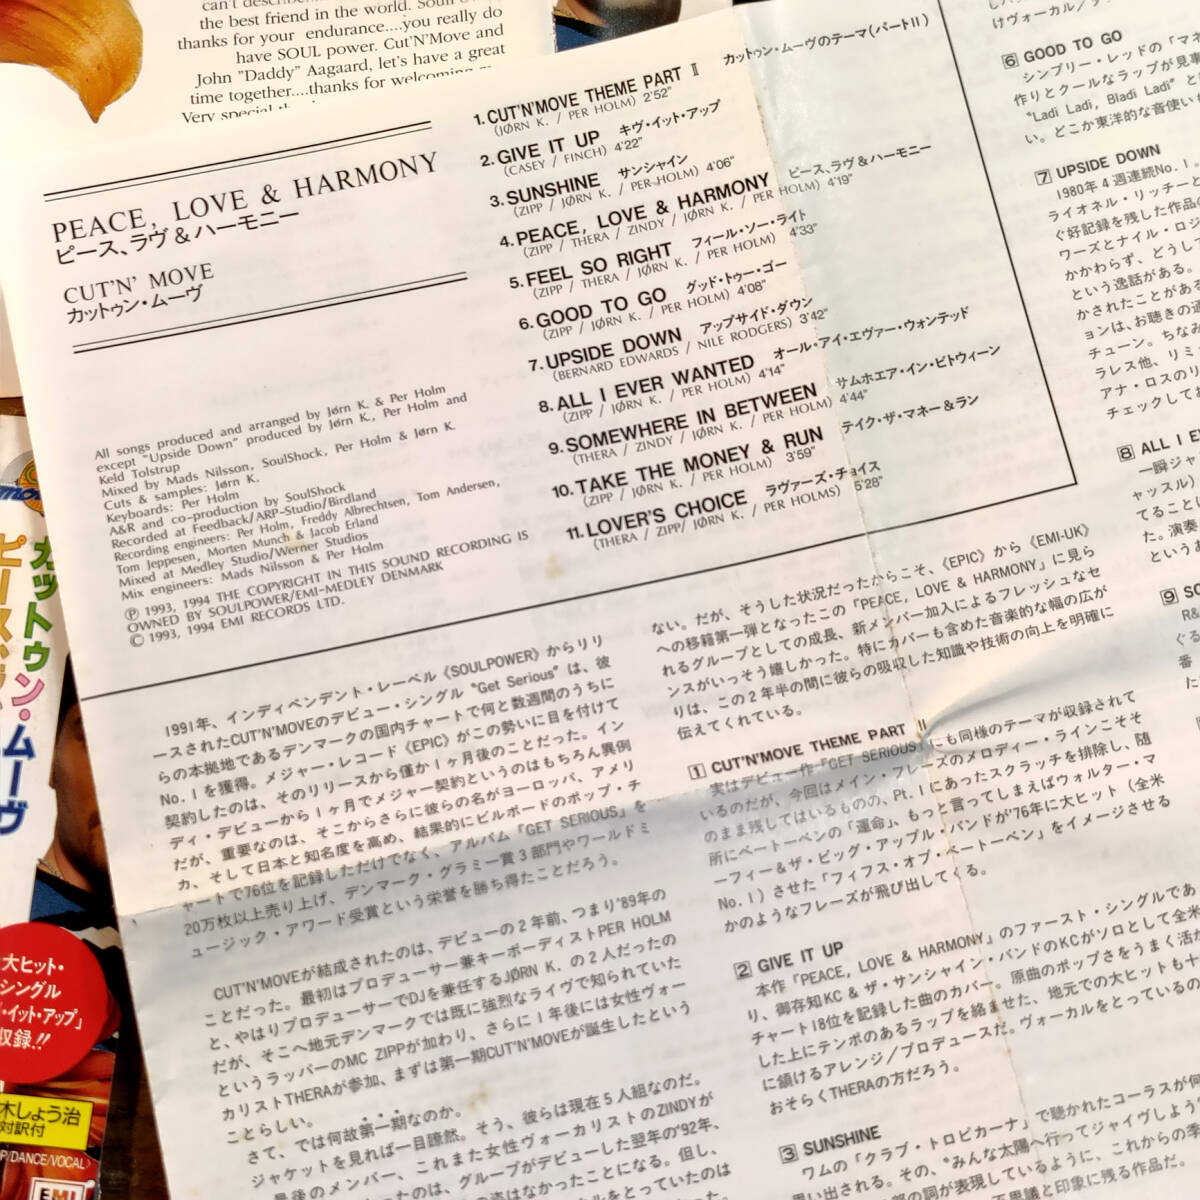 the best friend in the world.
thanks for your endurance....you really do
have SOUL power. Cut'N'Move and
John "Daddy" Aagaard, let's have a great
time together....thanks for welcoming
PEACE, LOVE & HARMONY
ピース、ラヴ&ハーモニー
CUT'N' MOVE
カットゥン・ムーヴ
All songs produced and arranged by Jørn K. & Per Holm
except "Upside Down" produced by Jørn K., Per Holm and
Keld Tolstrup
Mixed by Mads Nilsson, SoulShock, Per Holm & Jørn K.
Cuts & samples: Jørn K.
Keyboards: Per Holm
A&R and co-production by SoulShock
Recorded at Feedback/ARP-Studio/Birdland
Recording engineers: Per Holm, Freddy Albrechtsen, Tom Andersen,
Tom Jeppesen, Morten Munch & Jacob Erland
Mixed at Medley Studio/Werner Studios
Mix engineers: Mads Nilsson & Per Holm
Ⓟ 1993, 1994 THE COPYRIGHT IN THIS SOUND RECORDING IS
OWNED BY SOULPOWER/EMI-MEDLEY DENMARK
© 1993, 1994 EMI RECORDS LTD.
1. CUT'N'MOVE THEME PART Ⅱ カットゥン・ムーヴのテーマ(パートII)
(JØRN K. / PER HOLM) 2'52"
2. GIVE IT UP キヴ・イット・アップ
(CASEY / FINCH) 4'22"
3. SUNSHINE サンシャイン
(ZIPP / JØRN K. / PER HOLM) 4'06"
4. PEACE, LOVE & HARMONY ピース、ラヴ&ハーモニー
(ZIPP / THERA / ZINDY / JØRN K. / PER HOLM) 4'19"
5. FEEL SO RIGHT フィール・ソー・ライト
(ZIPP / THERA / JØRN K. / PER HOLM) 4'33"
6. GOOD TO GO グッド・トゥー・ゴー
(ZIPP / JØRN K. / PER HOLM) 4'08"
7. UPSIDE DOWN アップサイド・ダウン
(BERNARD EDWARDS / NILE RODGERS) 3'42"
8. ALL I EVER WANTED オール・アイ・エヴァー・ウォンテッド
(ZIPP / JØRN K. / PER HOLM) 4'14"
9. SOMEWHERE IN BETWEEN サムホエア・イン・ビトウィーン
(THERA / ZINDY / JØRN K. / PER HOLM) 4'44"
10. TAKE THE MONEY & RUN テイク・ザ・マネー&ラン
(ZIPP / JØRN K. / PER HOLM) 3'59"
11. LOVER'S CHOICE ラヴァーズ・チョイス
(THERA / ZIPP/ JØRN K. / PER HOLMS) 5'28"
1991年、インディペンデント・レーベル《SOULPOWER》からリリ
ースされたCUT'N'MOVEのデビュー・シングル "Get Serious" は、彼
らの本拠地であるデンマークの国内チャートで何と数週間のうちに
No.1を獲得。メジャー・レコード《EPIC》がこの勢いに目を付けて
契約したのは、そのリリースから僅か1ヶ月後のことだった。イン
ディ・デビューから1ヶ月でメジャー契約というのはもちろん異例
だが、重要なのは、そこからさらに彼らの名がヨーロッパ、アメリ
カ、そして日本と知名度を高め、結果的にビルボードのポップ・チ
ャートで76位を記録しただけでなく、アルバム「GET SERIOUS」を
20万枚以上売り上げ、デンマーク・グラミー賞3部門やワールドミ
ュージック・アワード受賞という栄誉を勝ち得たことだろう。
CUT'N'MOVEが結成されたのは、デビューの2年前、つまり'89年の
ことだった。最初はプロデューサー兼キーボーディストPER HOLM
と、やはりプロデューサーでDJを兼任するJØRN K. の2人だったの
だが、そこへ地元デンマークでは既に強烈なライヴで知られていた
というラッパーのMC ZIPPが加わり、さらに1年後には女性ヴォー
カリストTHERAが参加、まずは第一期CUT'N'MOVEが誕生したという
ことらしい。
さて、では何故第一期なのか。
ジャケットを見れば一目瞭然。そう、彼らは現在5人組なのだ。
最後のメンバー、これまた女性ヴォーカリストのZINDYが
たのは、グループがデビューした翌年の'92年、
ない。だが、そうした状況だったからこそ、《EPIC》から《EMI-UK》
への移籍第一弾となったこの「PEACE, LOVE & HARMONY」に見ら
れるグループとしての成長、新メンバー加入によるフレッシュなセ
ンスがいっそう嬉しかった。特にカバーも含めた音楽的な幅の広が
りは、この2年半の間に彼らの吸収した知識や技術の向上を明確に
伝えてくれている。
1 CUT'N'MOVE THEME PART Ⅱ
実はデビュー作「GET SERIOUS」にも同様のテーマが収録されて
いるのだが、今回はメイン・フレーズのメロディー・ラインこそそ
のまま残してはいるものの、Pt.1にあったスクラッチを排除し、随
所にベートーベンの「運命」、もっと言ってしまえばウォルター・マ
ーフィー&ザ・ビッグ・アップル・バンドが'76年に大ヒット(全米
No.1)させた「フィフス・オブ・ベートーベン」をイメージさせる
かのようなフレーズが飛び出してくる。
2 GIVE IT UP
本作「PEACE, LOVE & HARMONY」のファースト・シングルであ
り、御存知KC&ザ・サンシャイン・バンドのKCがソロとして全米
チャート18位を記録した曲のカバー。原曲のポップさをうまく活か
した上にテンポのあるラップを絡ませた、地元での大ヒットも十
に頷けるアレンジ/プロデュースだ。ヴォーカルをとっているの
おそらくTHERAの方だろう。
3 SUNSHINE
ワムの「クラブ・トロピカーナ」で聴かれたコーラスが何
い出される。その、"みんな太陽へ行ってジャイヴしよう
部の詞が表現しているように、これからの季
不思議と印象に残る作品だ。
けヴォーカル/
6 GOOD TO GO
シンプリー・レッドの「マネ
作りとクールなラップが見事
"Ladi Ladi, Bladi Ladi" と
い。どこか東洋的な音使い
7 UPSIDE DOWN
1980年4週連続No.1
ライオネル・リッチーと
ぐ好記録を残した作品の
ワーズとナイル・ロジ
かかわらず、どうして
という逸話がある。
かされたことがある
ョンは、お聴きの通
チューン。ちなみ
ラレス他、リミ
アナ・ロスのリ
チェックしてお
8 ALL I E
一瞬ジャ
ャッスル)
てること
た。演奏
というあ
9 SO
R&
ぐる
番
た
カットゥン・ムーヴ
大ヒット・
シングル
・イット・アップ」
収録!!
木しょう治
対訳付
P/DANCE/VOCAL〉
EMI